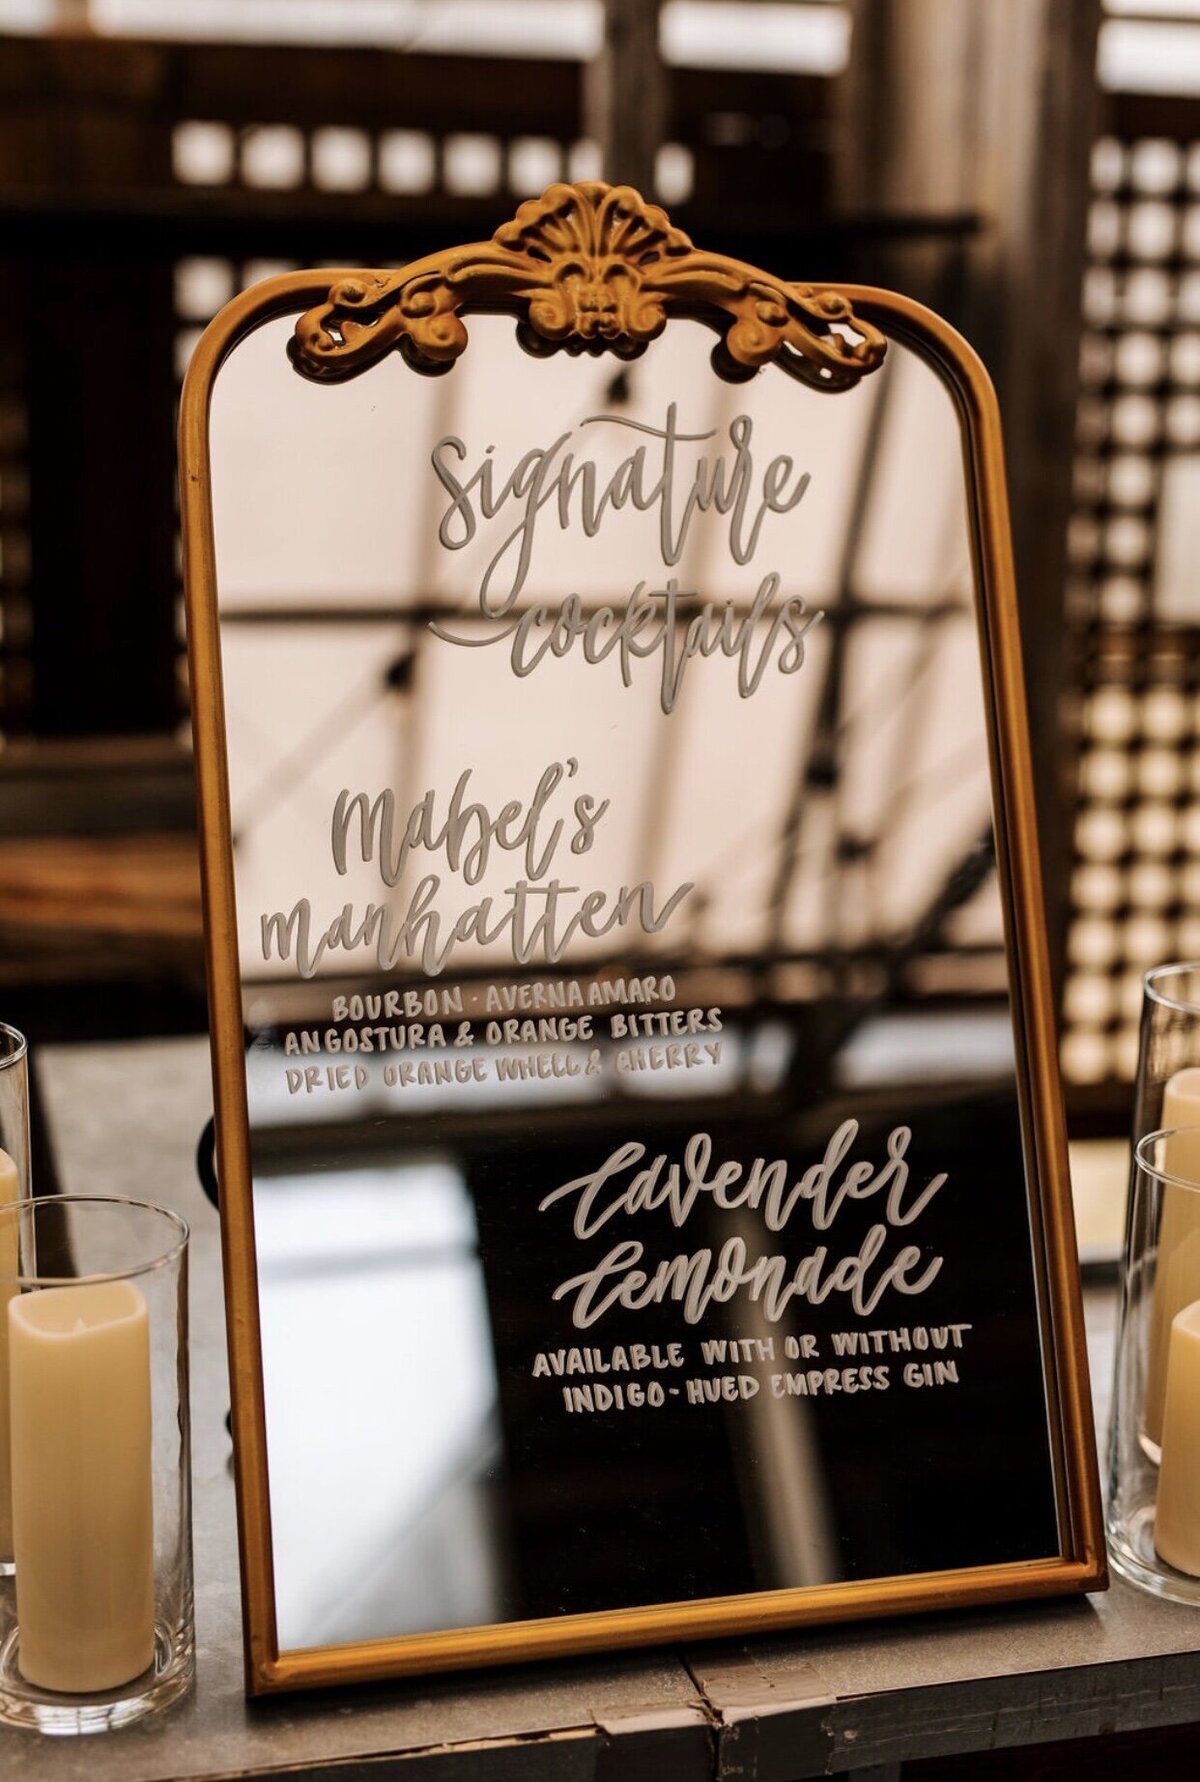 Signature
cocktails
Mabel's
manhatten
BOURBON · AVERNA AMARO
ANGOSTURA & ORANGE BITTERS
DRIED ORANGE WHELL & CHERRY
Lavender
Lemonade
AVAILABLE WITH OR WITHOUT
INDIGO-HUED EMPRESS GIN